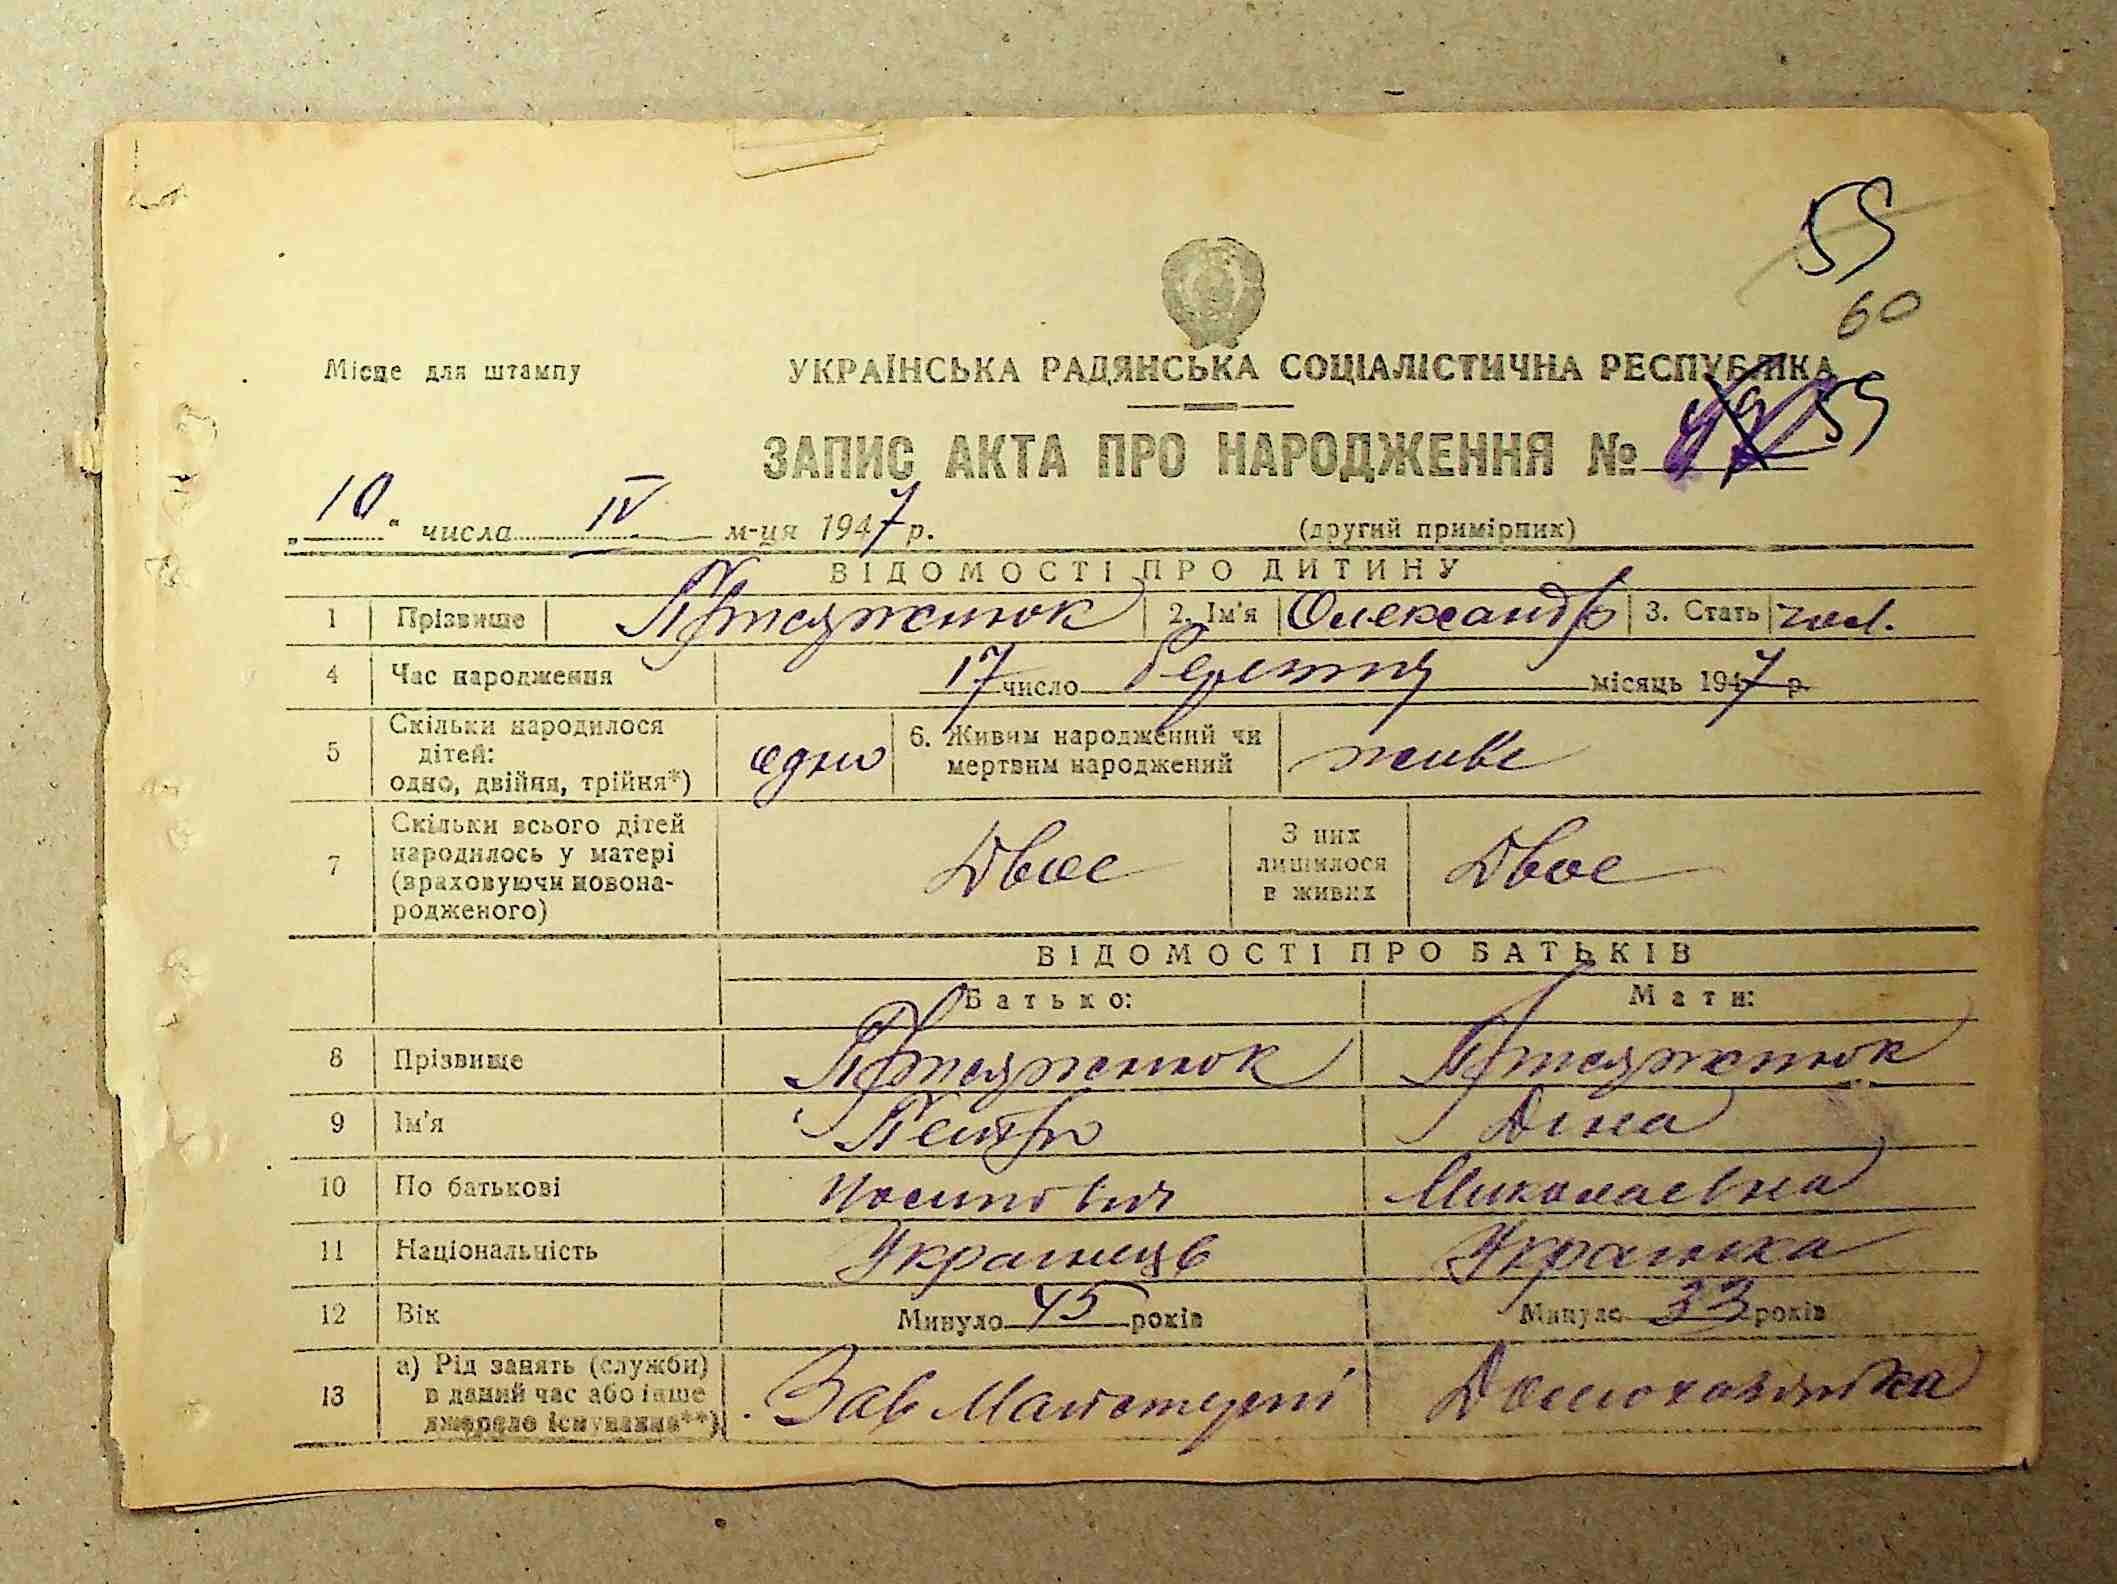 55
60
Місце для штампу
УКРАЇНСЬКА РАДЯНСЬКА СОЦІАЛІСТИЧНА РЕСПУБЛІКА
ЗАПИС АКТА ПРО НАРОДЖЕННЯ № 55
„10“ числа IV м-ця 1947 р.
(другий примірник)
ВІДОМОСТІ ПРО ДИТИНУ
1 Прізвище 2. Ім'я Олександр 3. Стать чол.
4 Час народження 17 число березня місяць 1947 р.
5 Скільки народилося дітей: одно, двійня, трійня*) одно 6. Живим народжений чи мертвим народжений живе
7 Скільки всього дітей народилось у матері (враховуючи новонародженого) Двоє З них лишилося в живих Двоє
ВІДОМОСТІ ПРО БАТЬКІВ
Батько: Мати:
8 Прізвище
9 Ім'я Петро Діна
10 По батькові Йосипович Миколаевна
11 Національність Українець Українка
12 Вік Минуло 45 років Минуло 33 років
13 а) Рід занять (служби) в даний час або інше джерело існування**) Зав Майстерні Домохазяйка